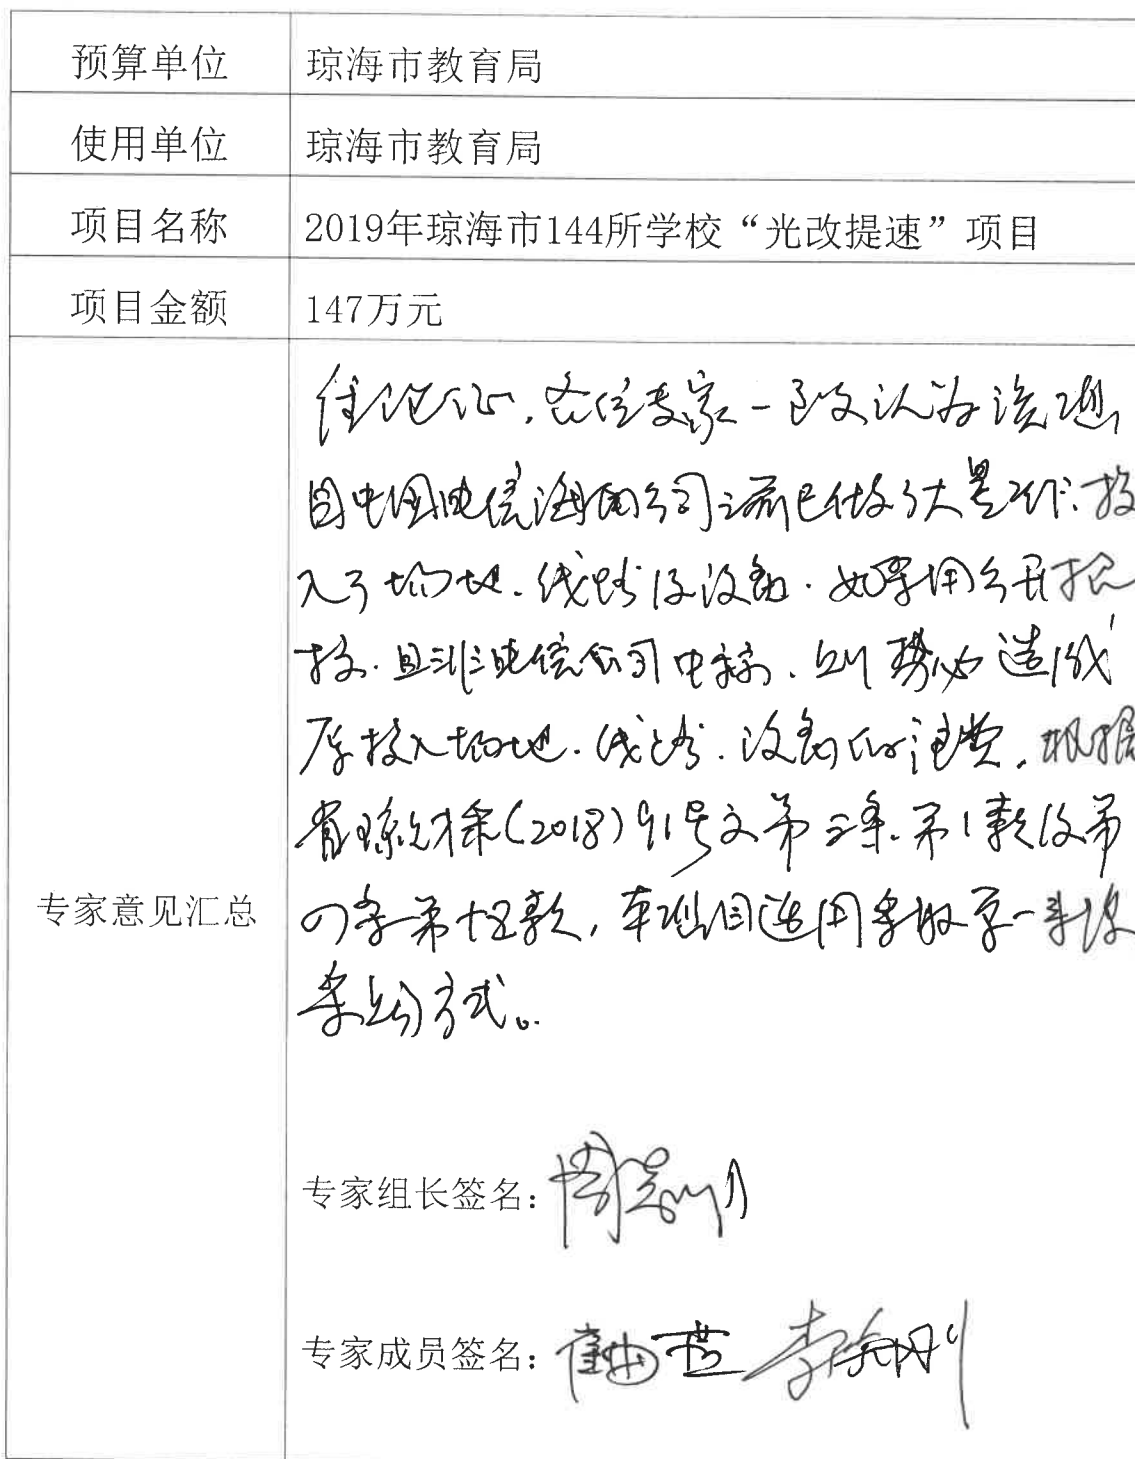 预算单位 琼海市教育局
使用单位 琼海市教育局
项目名称 2019年琼海市144所学校“光改提速”项目
项目金额 147万元
专家意见汇总
经论证,各位专家一致认为该项
目中国电信海南公司之前已做了大量工作,投
入了场地、线路及设备.如采用公开招
投.且非电信公司中标.则势必造成
原投入场地.线路.设备的浪费.根据
省琼财采(2018)91号文第三条.第1款及第
四条第十五款,本项目适用采取单一来源
采购方式。
专家组长签名:
专家成员签名: